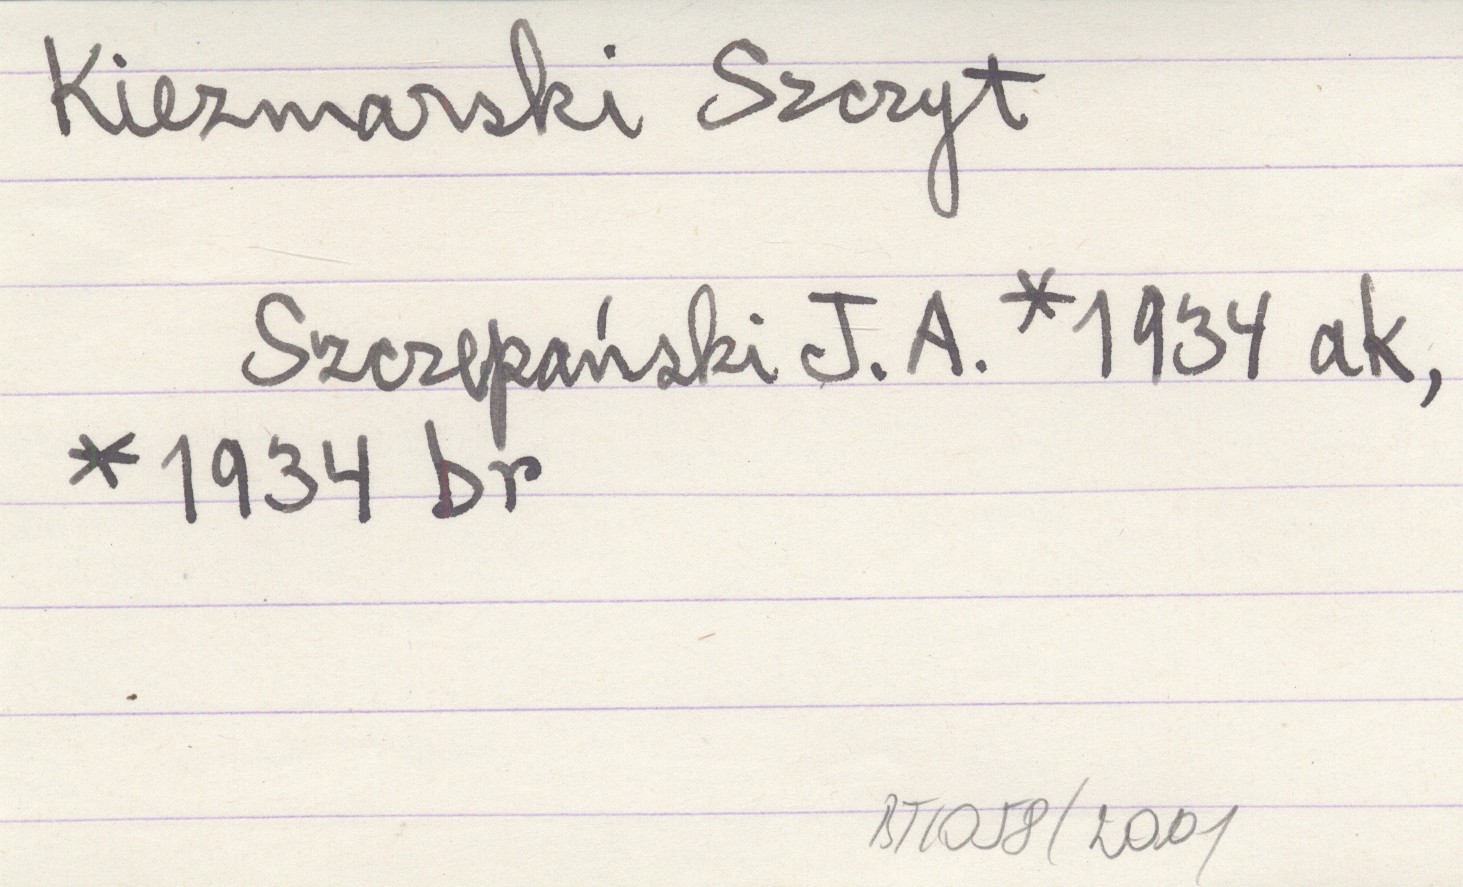 Kiezmarski Szczyt
Szczepański J. A. *1934 ak,
*1934 br
BT1058/2001